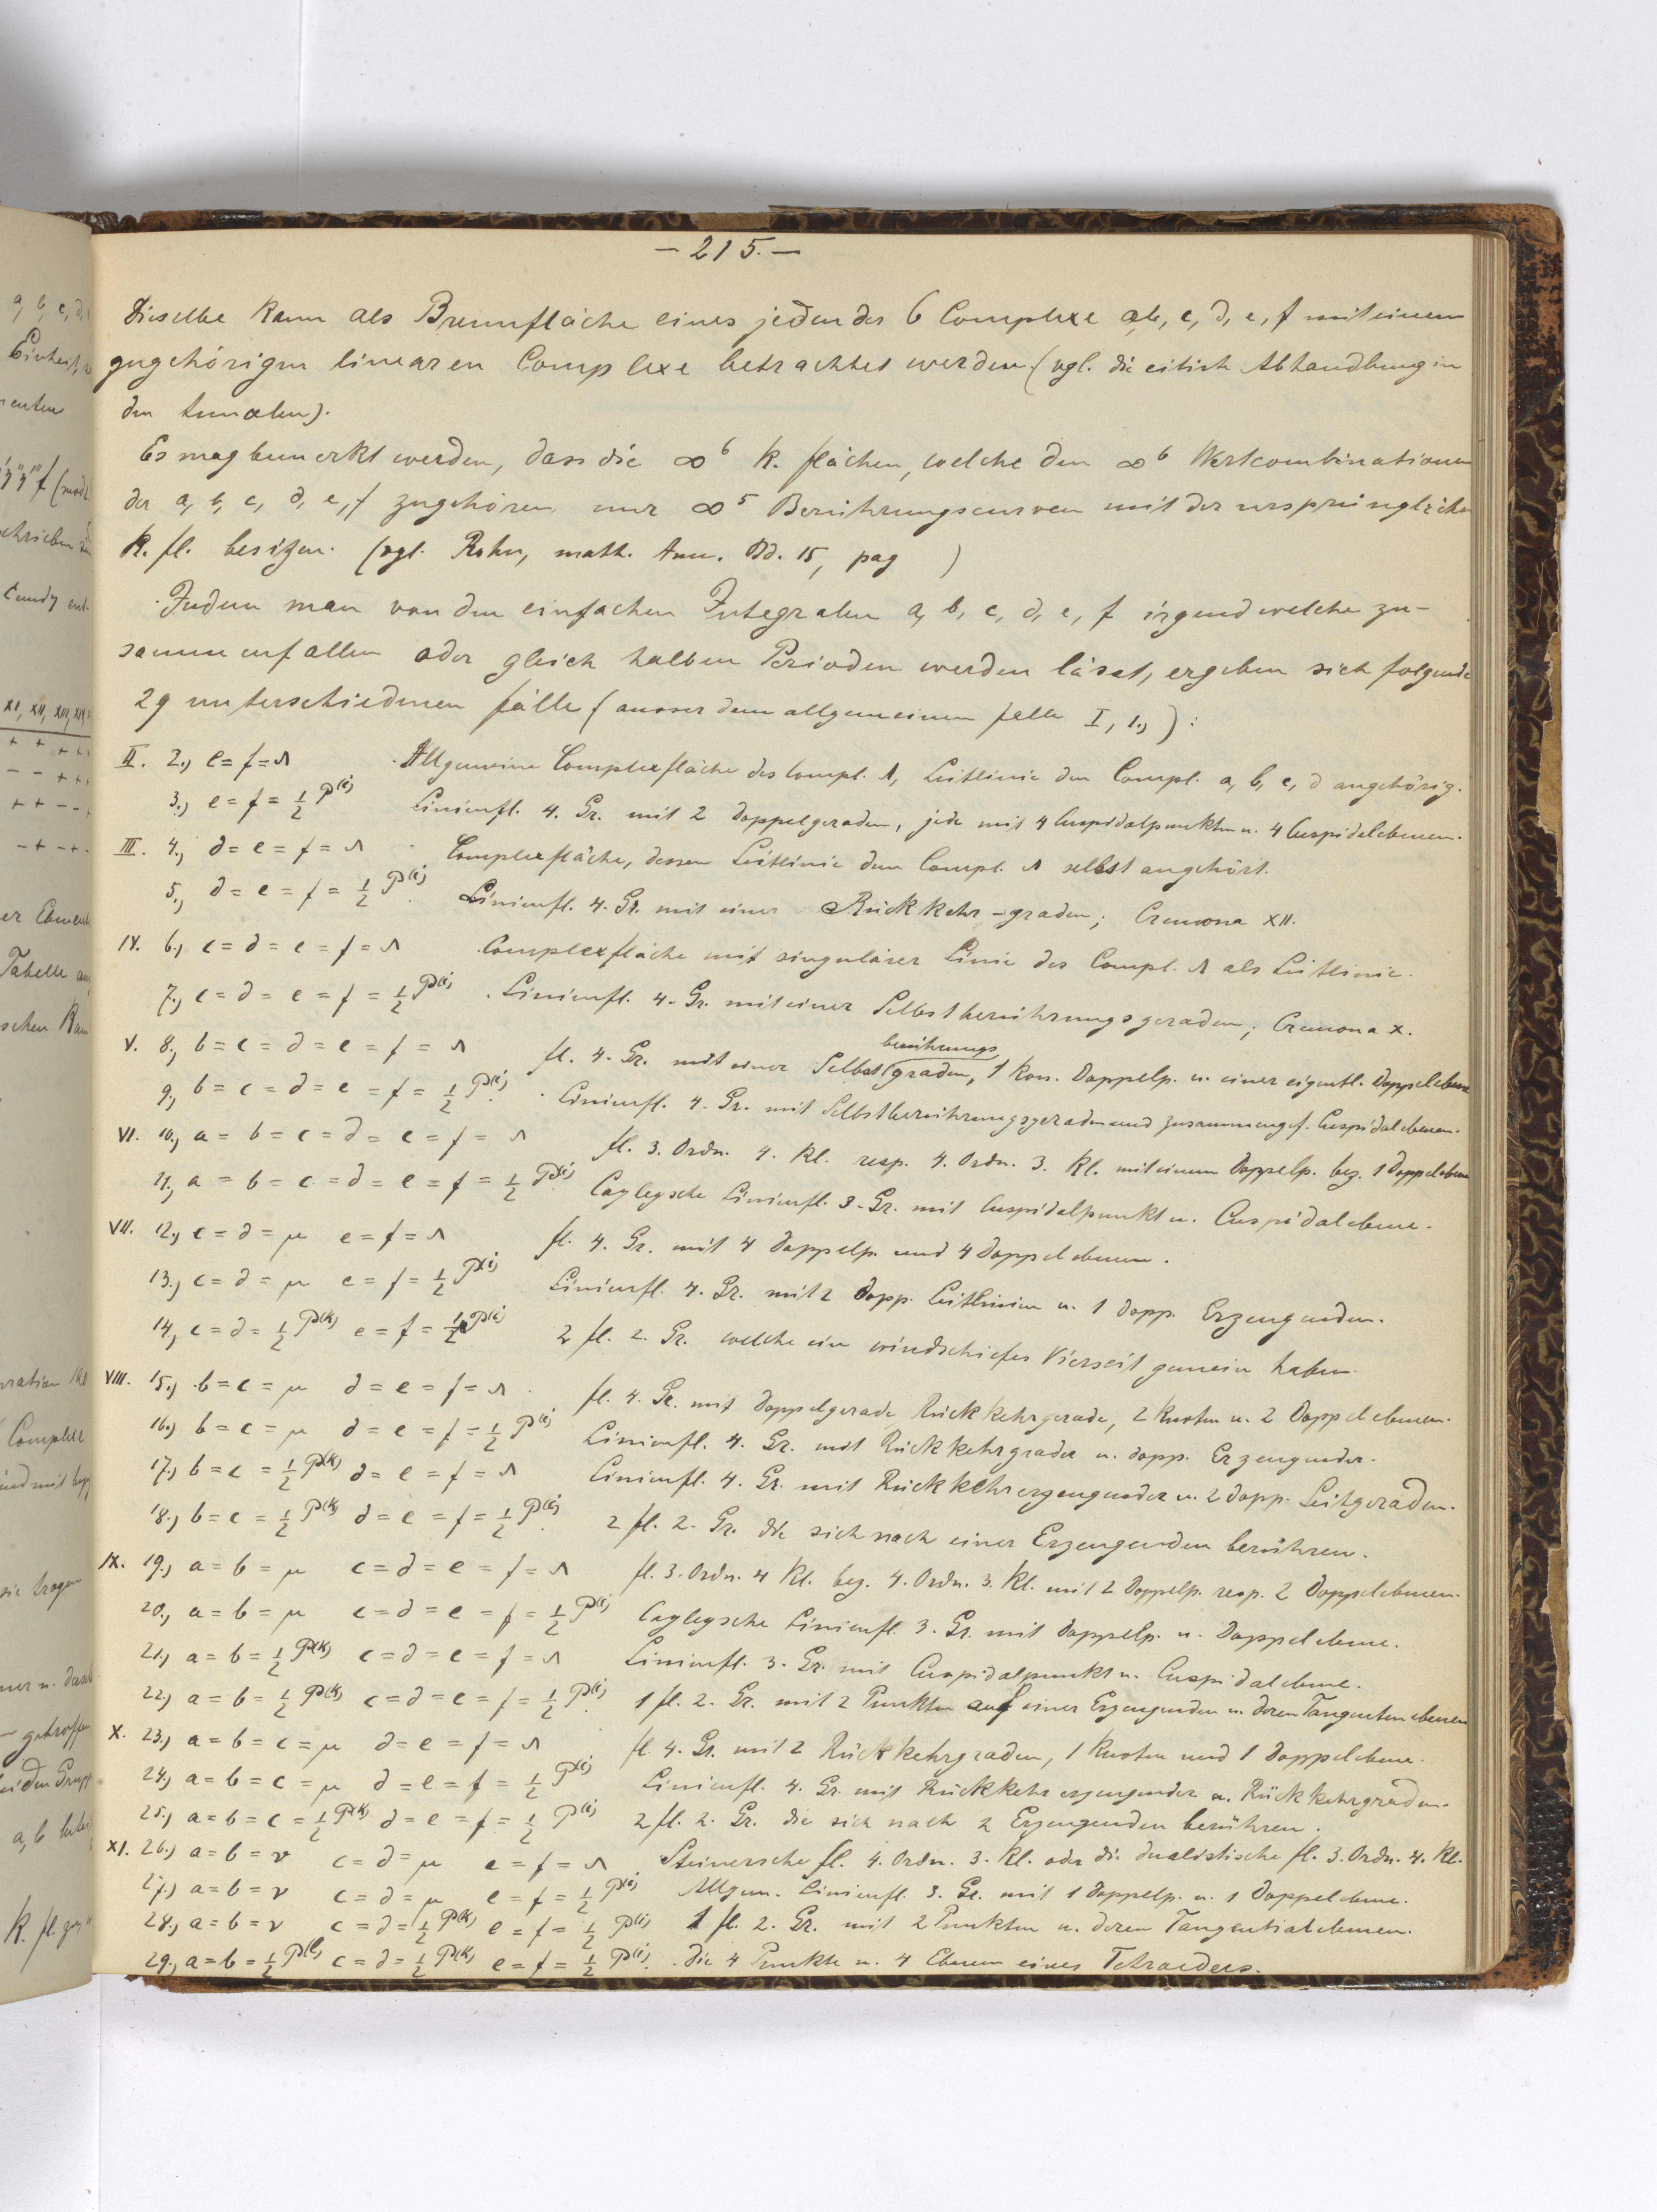 – 215. –
Dieselbe kann als Brennfläche eines jeden der 6 Complexe a, b, c, d, e, f mit einem
zugehörigen linearen Complexe betrachtet werden. (vgl. die citirte Abhandlung in
den Annalen).
Es mag bemerkt werden, dass die ∞⁶ K. flächen, welche den ∞⁶ Wertcombinationen
der a, b, c, d, e, f zugehören nur ∞⁵ Berührungscurven mit der ursprünglichen
K. fl. besitzen. (vgl. Rohn, math. Ann. Bd. 15, pag )
Indem man von den einfachen Integralen a, b, c, d, e, f irgend welche zu-
sammenfallen oder gleich halben Perioden werden lässt, ergeben sich folgende
29 unterschiedenen fälle (ausser dem allgemeinen falle I, 1.,):
II. 2., e = f = λ Allgemeine Complexfläche des Compl. λ, Leitlinie den Compl. a, b, c, d angehörig.
3., e = f = ½ P⁽ⁱ⁾ Linienfl. 4. Gr. mit 2 Doppelgeraden, jede mit 4 Cuspidalpunkten u. 4 Cuspidalebenen.
III. 4., d = e = f = λ Complexfläche, dessen Leitlinie dem Compl. λ selbst angehört.
5., d = e = f = ½ P⁽ⁱ⁾. Linienfl. 4. Gr. mit einer Rückkehr-graden; Cremona XII.
IV. 6.) c = d = e = f = λ Complexfläche mit singulärer Linie des Compl. λ als Leitlinie.
7., c = d = e = f = ½ P⁽ⁱ⁾. Linienfl. 4. Gr. mit einer Selbstberührungsgeraden; Cremona X.
V. 8., b = c = d = e = f = λ fl. 4. Gr. mit einer Selbst(berührungs graden, 1 kon. Doppelp. u. einer eigentl. Doppelebene
9., b = c = d = e = f = ½ P⁽ⁱ⁾. Linienfl. 4. Gr. mit Selbstberührungsgeraden und zusammengef. Cuspidalebenen.
VI. 10., a = b = c = d = e = f = λ fl. 3. Ordn. 4. Kl. resp. 4. Ordn. 3. Kl. mit einem Doppelp. bez. 1 Doppelebene
11., a = b = c = d = e = f = ½ P⁽ⁱ⁾. Cayleysche Linienfl. 3. Gr. mit Cuspidalpunkt u. Cuspidalebene.
VII. 12., c = d = μ e = f = λ fl. 4. Gr. mit 4 Doppelp. und 4 Doppelebenen.
13., c = d = μ e = f = ½ P⁽ⁱ⁾ Linienfl. 4. Gr. mit 2 Dopp. Leitlinien u. 1 dopp. Erzeugenden.
14., c = d = ½ P⁽ᵏ⁾ e = f = ½ P⁽ⁱ⁾ 2 fl. 2. Gr. welche ein windschiefes Vierseit gemein haben.
VIII. 15.) b = c = μ d = e = f = λ fl. 4. Gr. mit Doppelgerade, Rückkehrgerade, 2 Knoten u. 2 Doppelebenen.
16.) b = c = μ d = e = f = ½ P⁽ⁱ⁾ Linienfl. 4. Gr. mit Rückkehrgrader u. dopp. Erzeugender.
17.) b = c = ½ P⁽ᵏ⁾ d = e = f = λ Linienfl. 4. Gr. mit Rückkehrerzeugender u. 2 dopp. Leitgeraden.
18., b = c = ½ P⁽ᵏ⁾ d = e = f = ½ P⁽ⁱ⁾. 2 fl. 2. Gr. die sich nach einer Erzeugenden berühren.
IX. 19.) a = b = μ c = d = e = f = λ fl. 3. Ordn. 4 Kl. bez. 4. Ordn. 3. Kl. mit 2 Doppelp. resp. 2 Doppelebenen.
20., a = b = μ c = d = e = f = ½ P⁽ⁱ⁾ Cayleysche Linienfl. 3. Gr. mit Doppelp. u. Doppelebene.
21., a = b = ½ P⁽ᵏ⁾ c = d = e = f = λ Linienfl. 3. Gr. mit Cuspidalpunkt u. Cuspidalebene.
22., a = b = ½ P⁽ᵏ⁾ c = d = e = f = ½ P⁽ⁱ⁾. 1 fl. 2. Gr. mit 2 Punkten auf einer Erzeugenden u. deren Tangentenebenen
X. 23., a = b = c = μ d = e = f = λ fl. 4. Gr. mit 2 Rückkehrgraden, 1 Knoten und 1 Doppelebene.
24., a = b = c = μ d = e = f = ½ P⁽ⁱ⁾ Linienfl. 4. Gr. mit Rückkehrerzeugender u. Rückkehrgraden.
25., a = b = c = ½ P⁽ᵏ⁾ d = e = f = ½ P⁽ⁱ⁾ 2 fl. 2. Gr. die sich nach 2 Erzeugenden berühren.
XI. 26.) a = b = ν c = d = μ e = f = λ Steinersche fl. 4. Ordn. 3. Kl. oder die dualistische fl. 3. Ordn. 4. Kl.
27.) a = b = ν c = d = μ e = f = ½ P⁽ⁱ⁾ Allgem. Linienfl. 3. Gr. mit 1 Doppelp. u. 1 Doppelebene.
28., a = b = ν c = d = ½ P⁽ᵏ⁾ e = f = ½ P⁽ⁱ⁾ 1 fl. 2. Gr. mit 2 Punkten u. deren Tangentialebenen.
29., a = b = ½ P⁽ˡ⁾ c = d = ½ P⁽ᵏ⁾ e = f = ½ P⁽ⁱ⁾. Die 4 Punkte u. 4 Ebenen eines Tetraeders.